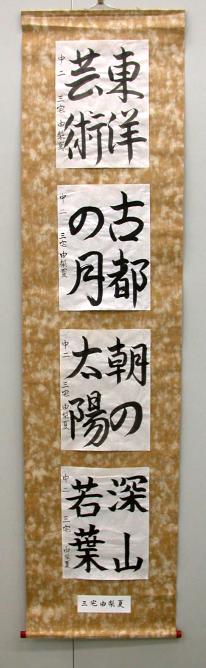 東洋
芸術
中二 三宅由梨夏
古都
の月
中二 三宅由梨夏
朝の
太陽
中二 三宅由梨夏
深山
若葉
中二 三宅由梨夏
三宅由梨夏